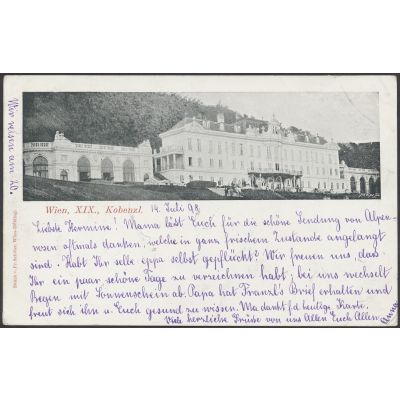 Wien, XIX., Kobenzl.
14 Juli 98
Liebste Hermine! Mama läßt Euch für die schöne Sendung von Alpen-
rosen oftmals danken, welche in ganz frischem Zustande angelangt
sind. Habt Ihr selbe eppa selbst gepflückt? Wir freuen uns, dass
Ihr ein paar schöne Tage zu verzeichnen habt, bei uns wechselt
Regen mit Sonnenschein ab. Papa hat Franzl's Brief erhalten und
freut sich ihn u. Euch gesund zu wissen. Ma dankt f. d. heutige Karte.
Viele herzliche Grüße von uns Allen Euch Allen.
Anna
Wir reisen am